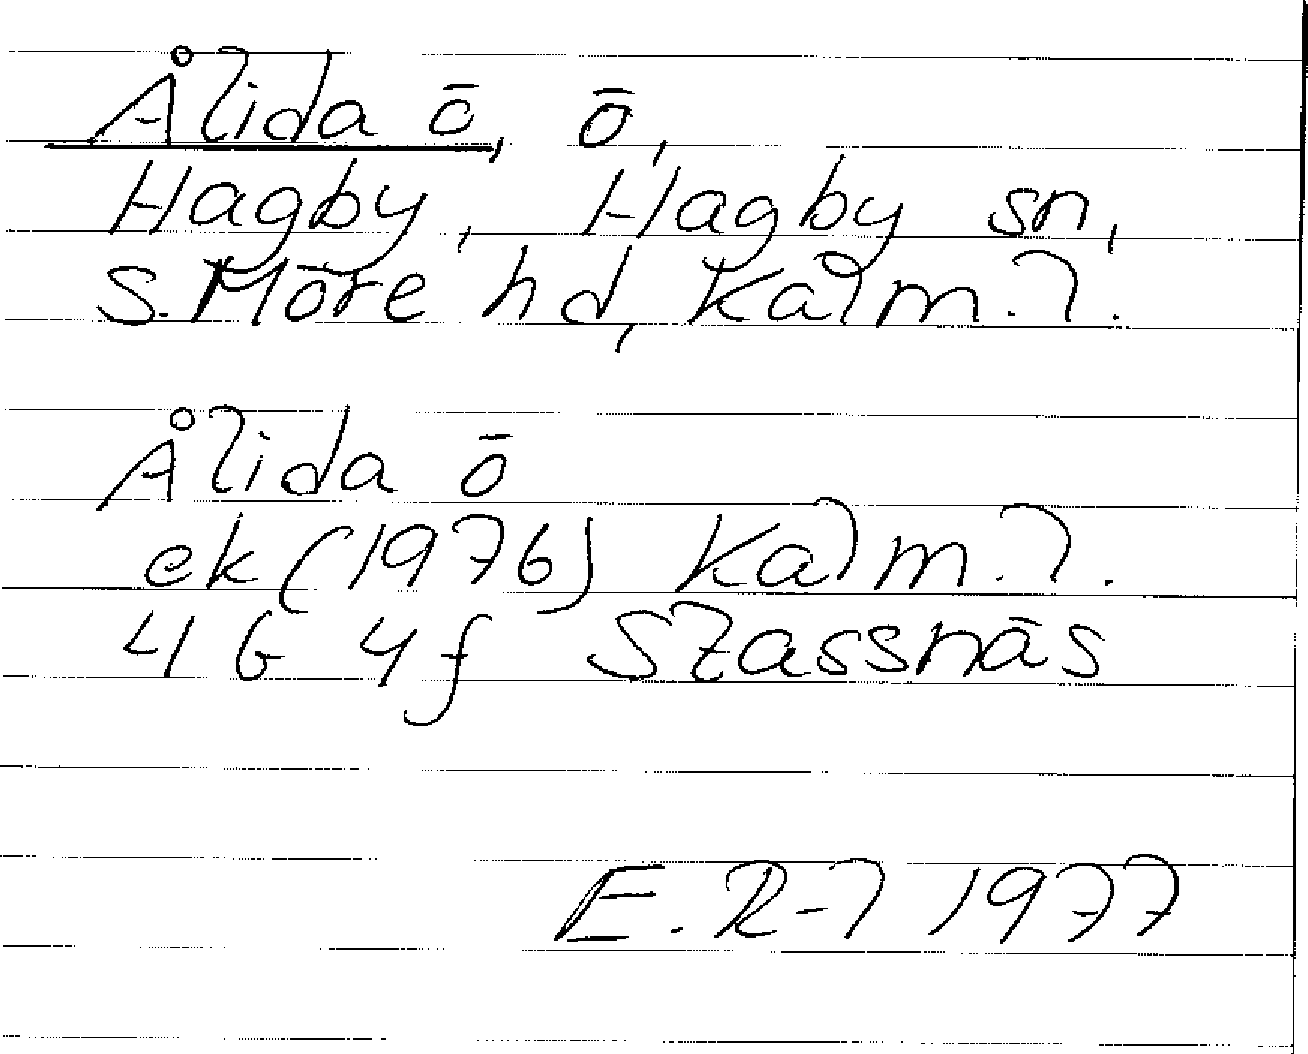 Ålida ö, ö,
Hagby, Hagby sn,
S. Möre hd, Kalm. l.
Ålida ö
ek (1976) Kalm. l.
4 G 4 f Stassnäs
E. R-l 1977